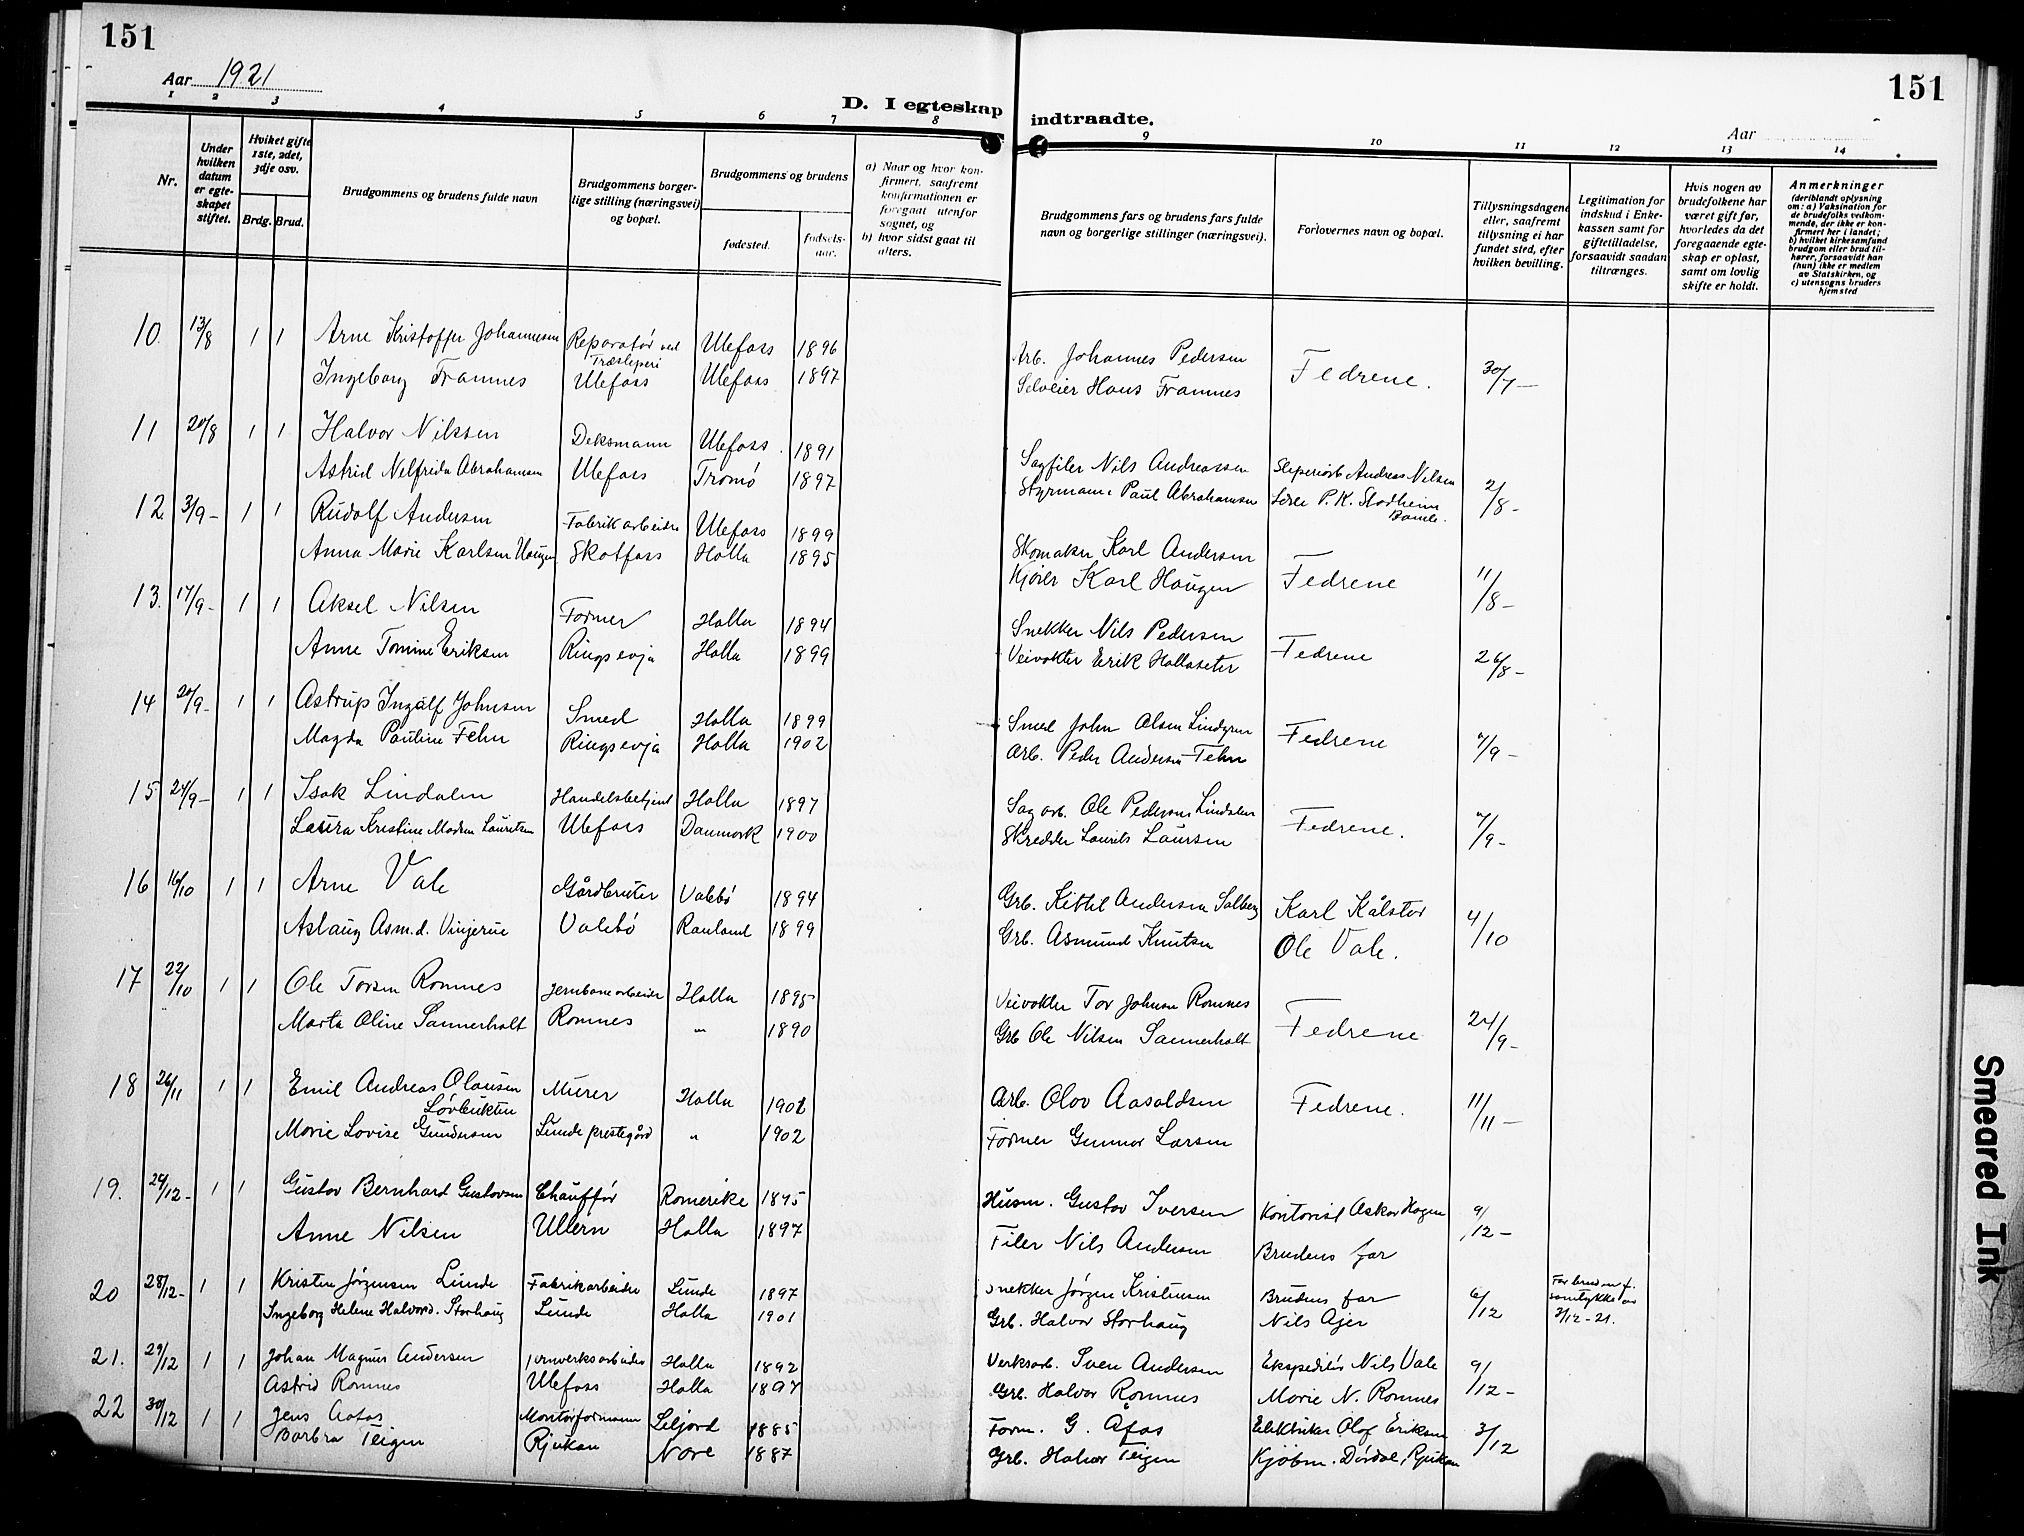 151
151
Aar 1921
D. I egteskap indtraadte.
Aar
1 2 3 4 5 6 7 8 9 10 11 12 13 14
Nr.
Under hvilken datum er egteskapet stiftet.
Hvilket gifte 1ste, 2det, 3dje osv.
Brdg. Brud.
Brudgommens og brudens fulde navn
Brudgommens borgerlige stilling (næringsvei) og bopæl.
Brudgommens og brudens
fødested.
fødselsaar.
a) Naar og hvor konfirmert, saafremt konfirmationen er foregaat utenfor sognet, og
b) hvor sidst gaat til alters.
Brudgommens fars og brudens fars fulde navn og borgerlige stillinger (næringsvei).
Forlovernes navn og bopæl.
Tillysningsdagene eller, saafremt tillysning ei har fundet sted, efter hvilken bevilling.
Legitimation for indskud i Enkekassen samt for giftetilladelse, forsaavidt saadan tiltrænges.
Hvis nogen av brudefolkene har været gift før, hvorledes da det foregaaende egteskap er opløst, samt om lovlig skifte er holdt.
Anmerkninger (deriblandt oplysning om: a) Vaksination for de brudefolks vedkommende, der ikke er konfirmert her i landet; b) hvilket kirkesamfund brudgom eller brud tilhører, forsaavidt han (hun) ikke er medlem av Statskirken, og c) utensogns bruders hjemsted
10. 13/8 1 1 Arne Kristoffer Johannesen Reparatør ved Træsliperi Ulefoss 1896 Arb. Johannes Pedersen Fedrene. 30/7 -
Ingeborg Framnes Ulefoss Ulefoss 1897 Selveier Hans Framnes
11 20/8 1 1 Halvor Nilsen Deksmann Ulefoss. 1891 Sagfiler Nils Andreassen Sliperiarb Andreas Nilsen 2/8 -
Astrid Nelfrida Abrahamsen Ulefoss Tromø 1897 Styrmann Paul Abrahamsen P. K. Stadheim Bamle.
12. 3/9 - 1 1 Rudolf Andersen Fabrikarbeider Ulefoss 1899 Skomaker Karl Andersen Fedrene 11/8 -
Anna Marie Karlsen Haugen Skotfoss Holla 1895 Kjører Karl Haugen
13. 17/9 - 1 1 Aksel Nilsen Former Holla 1894 Snekker Nils Pedersen Fedrene 26/8 -
Anne Tomine Eriksen Ringsevja Holla 1899 Veivokter Erik Hollaseter
14 20/9 - 1 1 Astrup Ingolf Johnsen Smed Holla 1899 Smed John Olsen Lindgren Fedrene 7/9 -
Magda Pauline Fehn Ringsevja Holla 1902 Arb. Peder Andersen Fehn
15 24/9 - 1 1 Isak Lindalen Handelsbetjent Holla 1897 Sagarb. Ole Pedersen Lindalen Fedrene. 7/9 -
Laura Kristine Madsen Lauritsen Ulefoss Danmark 1900 Skredder Laurits Laursen
16 16/10 1 1 Arne Vale Gårdbruker Valebø 1894 Grb. Kittil Andersen Solberg Karl Kålstor 4/10
Aslaug Asm.d. Vinjerue Valebø Rauland 1899 Grb. Asmund Knutsen Ole Vale.
17 22/10 1 1 Ole Torsen Romnes Jernbanearbeider Holla 1895 Veivokter Tor Johnsen Romnes Fedrene 24/9 -
Marta Oline Sannerholt Romnes " 1890 Grb Ole Nilsen Sannerholt
18 26/11 1 1 Emil Andreas Olausen Løvbukten Murer Holla Arb. Olav Aasoldsen Fedrene. 11/11 -
Marie Lovise Gundersen Lunde prestegård " 1902 Former Gunnar Larsen
19. 24/12 - 1 1 Gustav Bernhard Gustavsen Chauffør Romerike 1895 Husm. Gustav Iversen Kontorist Askar Hagen 9/12 -
Anne Nilsen Ullern Holla 1897 Filer Nils Andersen Brudens far
20 28/12 - 1 1 Kristen Jørgensen Lunde Fabrikarbeider Lunde 1897 Snekker Jørgen Kristensen Brudens far 6/12 samtykke av 3/12-21.
Ingeborg Helene Halvord. Storhaug Lunde Holla 1901 Grb. Halvor Storhaug Nils Ajer
21. 29/12 1 1 Johan Magnus Andersen Jernverksarbeider Holla 1892 Verksarb. Sven Andersen Ekspeditør Nils Vale 9/12 -
Astrid Romnes Ulefoss Holla 1897 Grb. Halvor Romnes Marie N. Romnes
22 30/12 1 1 Jens Aafos Montørformann Seljord 1885 Form. G. Åfos Elektriker Olaf Eriksen 3/12
Barbra Teigen Rjukan Nore 1887 Grb. Halvor Teigen Kjøbm. Dørdal, Rjukan
Smeared Ink